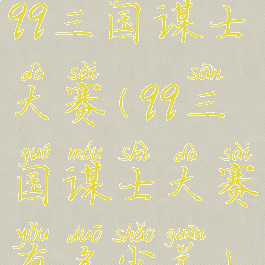 99三国谋士
dà sài sān
大赛(99三
guó móu shì dà sài
国谋士大赛
yǒu duō shǎo guān
有多少关)